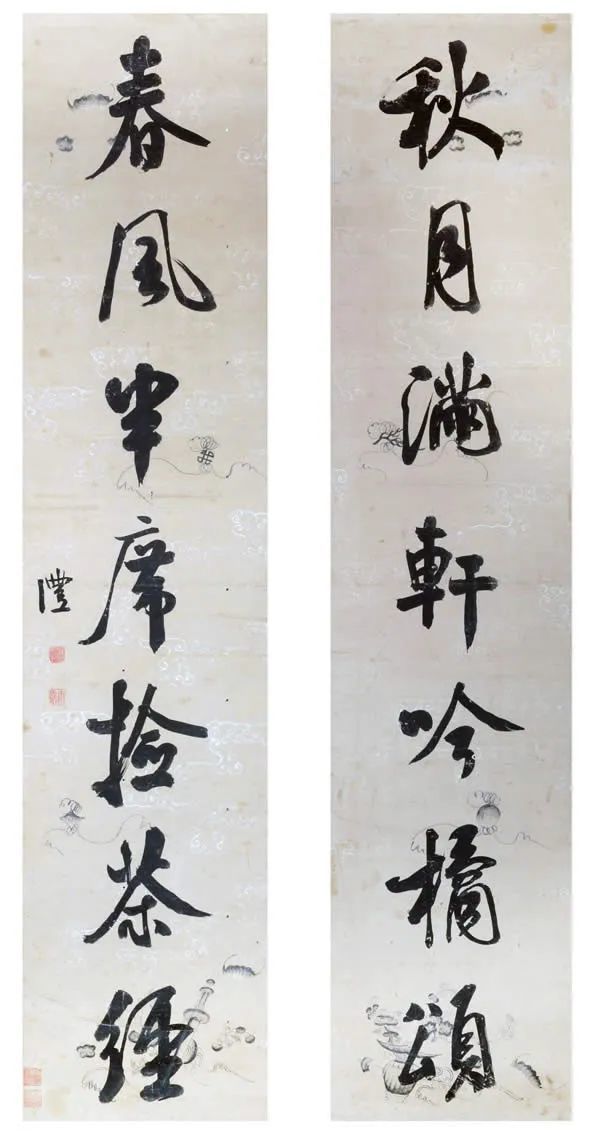 秋月滿軒吟橘頌
春風半席撿茶經